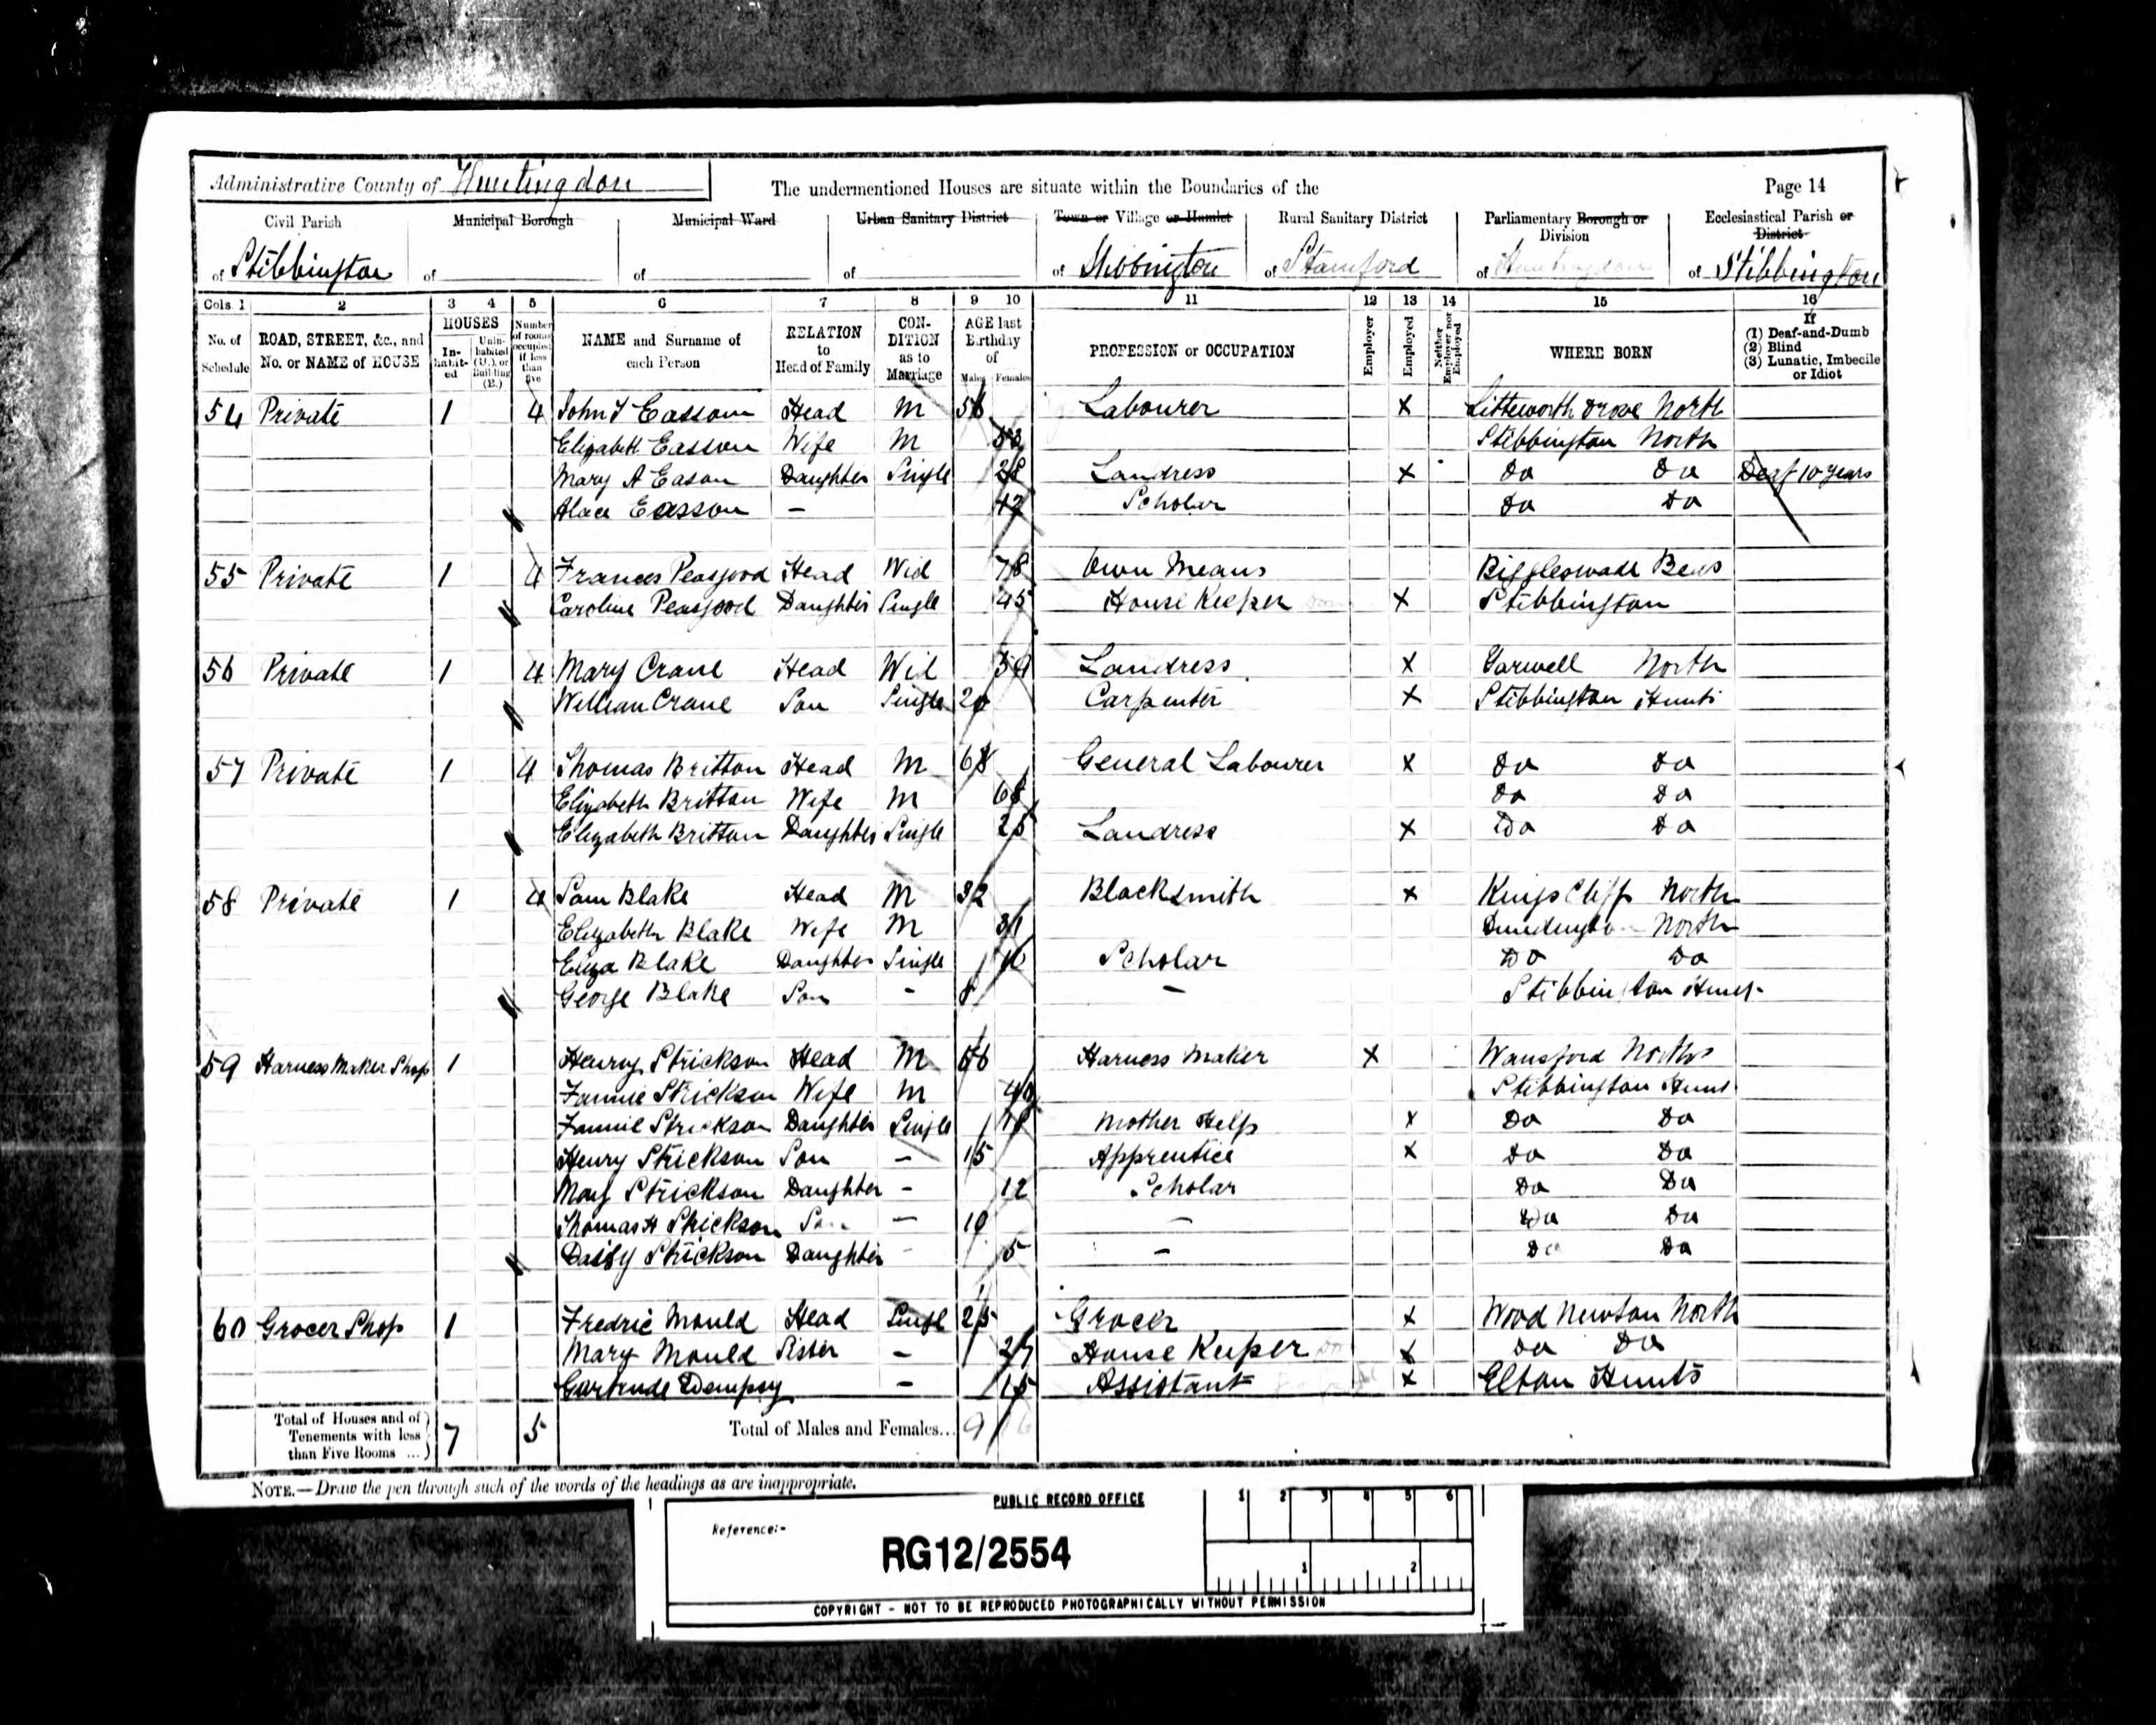 Administrative County of Huntingdon The undermentioned Houses are situate within the Boundaries of the Page 14
Civil Parish Municipal Borough Municipal Ward Urban Sanitary District Town or Village or Hamlet Rural Sanitary District Parliamentary Borough or Division Ecclesiastical Parish or District
of Stibbington of of of of Stibbington of Stamford of Huntingdon of Stibbington
Cols. 1 2 3 4 5 6 7 8 9 10 11 12 13 14 15 16
No. of Schedule ROAD, STREET, &c., and No. or NAME of HOUSE HOUSES In-habit-ed Unin-habited (U.), or Building (B.) Number of rooms occupied if less than five NAME and Surname of each Person RELATION to Head of Family CON-DITION as to Marriage AGE last Birthday of Males Females PROFESSION or OCCUPATION Employer Employed Neither Employer nor Employed WHERE BORN If (1) Deaf-and-Dumb (2) Blind (3) Lunatic, Imbecile or Idiot
54 Private 1 4 John T Eassom Head M 56 Labourer X Drove North
Elizabeth Easson Wife M 53 Stibbington North
Mary A Eason Daughter Single 28 Landress X Do Do Deaf 10 years
Alace Easson — 12 Scholar Do Do
55 Private 1 4 Frances Peasgood Head Wid 78 Own Means Biggleswade Beds
Caroline Peasgood Daughter Single 45 House Keeper X Stibbington
56 Private 1 4 Mary Crane Head Wid 59 Landress X Yarwell North
William Crane Son Single 20 Carpenter X Stibbington Hunts
57 Private 1 4 Thomas Britton Head M 68 General Labourer X Do Do
Elizabeth Britton Wife M 68 Do Do
Elizabeth Britton Daughter Single 25 Landress X Do Do
58 Private 1 4 Sam Blake Head M 32 Blacksmith X Kings Cliff North
Elizabeth Blake Wife M 31 North
Eliza Blake Daughter Single 10 Scholar Do Do
George Blake Son - 8 — Stibbington Hunts
59 Harness Maker Shop 1 Henry Strickson Head M 46 Harness Maker X Wansford North
Fannie Strickson Wife M 40 Stibbington Hunt
Fannie Strickson Daughter Single 18 Mother Help X Do Do
Henry Strickson Son — 15 Apprentice X Do Do
May Strickson Daughter - 12 Scholar Do Do
Thomas H Strickson Son — 10 — Do Do
Daisy Strickson Daughter - 5 — Do Do
60 Grocer Shop 1 Fredric Mould Head Singl 25 Grocer X Wood Newton North
Mary Mould Sister — 27 House Keeper Do X Do Do
Gartrude Dempsy — 15 Assistant X Elton Hunts
Total of Houses and of Tenements with less than Five Rooms ... 7 5 Total of Males and Females... 9 16
NOTE.—Draw the pen through such of the words of the headings as are inappropriate.
PUBLIC RECORD OFFICE 1 2 3 4 5 6
Reference:-
RG12/2554 1 2
COPYRIGHT - NOT TO BE REPRODUCED PHOTOGRAPHICALLY WITHOUT PERMISSION